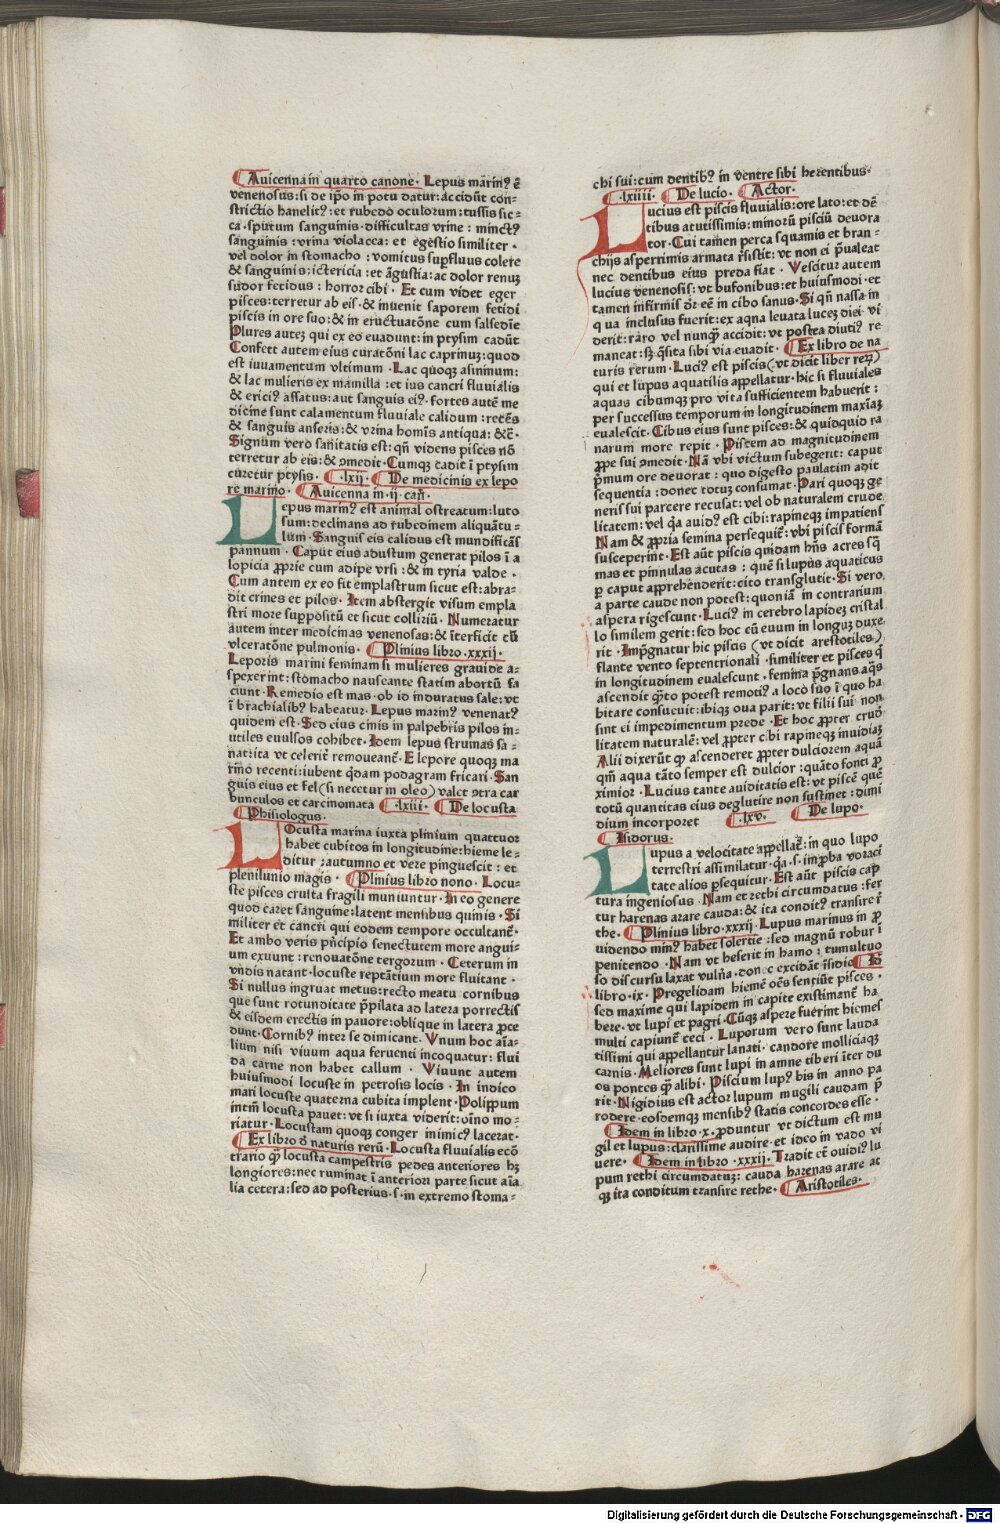 Auicenna in quarto canone. Lepus marinꝰ ē
venenosus: si de ipō in potu datur: accidūt con⸗
strictio hanelitꝰ: et rubedo oculorum: tussis sic⸗
ca. sputum sanguinis. difficultas vrine: minctꝰ
sanguinis: vrina violacea: et egestio similiter.
vel dolor in stomacho: vomitus supfluus colere
& sanguinis: ictericia: et āgustia: ac dolor renuꝫ
sudor fetidus: horror cibi. Et cum videt eger
pisces: terretur ab eis. & inuenit saporem fetidi
piscis in ore suo: & in eructuatōne cum salsedīe
Plures autēꝫ qui ex eo euadunt: in ptysim cadūt
Confert autem eius curatōni lac caprinuꝫ: quod
est iuuamentum vltimum. Lac quoqꝫ asininum:
& lac mulieris ex mamilla: et ius cancri fluuialis
& ericiꝰ assatus: aut sanguis eiꝰ. fortes autē me
dicine sunt calamentum fluuiale calidum: recēs
& sanguis anseris: & vrina homīs antiqua: &c̄.
Signum vero sanitatis est: qn̄ videns pisces nō
terretur ab eis: & ꝯmedit. Cumqꝫ cadit ī ptysim
curetur ptysis. .lxij. De medicinis ex lepo
re marino. Auicenna in .ij. can̄.
Lepus marinꝰ est animal ostreatum: luto
sum: declinans ad rubedinem aliquātu⸗
lum. Sanguis eis calidus est mundificās
pannum. Caput eius adustum generat pilos ī a
lopicia ꝓprie cum adipe vrsi: & in tyria valde.
Cum antem ex eo fit emplastrum sicut est: abra⸗
dit crines et pilos. Item abstergit visum empla
stri more suppositū et sicut colliriū. Numeratur
autem inter medicinas venenosas: & īterficit cū
vlceratōne pulmonis. Plinius libro .xxxij.
Leporis marini feminam si mulieres grauide a⸗
spexerint: stomacho nauseante statim abortū fa
ciunt. Remedio est mas. ob id induratus sale: vt
ī brachialibꝰ habeatur. Lepus marinꝰ venenatꝰ
quidem est. Sed eius cinis in palpebris pilos in⸗
utiles euulsos cohibet. Idem lepus strumas sa⸗
nat: ita vt celerit̄ remoueant̄. E lepore quoqꝫ ma
rīno recenti: iubent q̄dam podagram fricari. San
guis eius et fel (si necetur in oleo) valet ꝯtra car
bunculos et carcinomata .lxiii. De locusta
Phisiologus.
Locusta marina iuxta plinium quattuor
habet cubitos in longitudine: hieme le⸗
ditur: autumno et vere pinguescit: et
plenilunio magis. Plinius libro nono. Locu⸗
ste pisces crusta fragili muniuntur. In eo genere
quod caret sanguine: latent mensibus quinis. Si
militer et cancri qui eodem tempore occultant̄.
Et ambo veris pn̄cipio senectutem more angui⸗
um exuunt: renouatōne tergorum. Ceterum in
vndis natant. locuste reptātium more fluitant.
Si nullus ingruat metus: recto meatu cornibus
que sunt rotunditate p̄pilata ad latera porrectis
& eisdem erectis in pauore: oblique in latera ꝓce
dunt. Cornibꝰ inter se dimicant. Vnum hoc aīa⸗
lium nisi viuum aqua feruenti incoquatur: flui
da carne non habet callum. Viuunt autem
huiusmodi locuste in petrosis locis. In indico
mari locuste quaterna cubita implent. Polippum
intm̄ locusta pauet: vt si iuxta viderit: oīno mo⸗
riatur. Locustam quoqꝫ conger inimicꝰ lacerat.
Ex libro ꝺ̄ naturis rerū. Locusta fluuialis ecō
trario ꝙ locusta campestris pedes anteriores hꝫ
longiores: nec ruminat ī anteriori parte sicut aīa
lia cetera: sed ad posterius .s. in extremo stoma⸗
chi sui: cum dentibꝰ in ventre sibi herentibus.
.lxiiii. De lucio. Actor.
Lucius est piscis fluuialis: ore lato: et dē
tibus acutissimis: minorū pisciū deuora
tor. Cui tamen perca squamis et bran⸗
chijs asperrimis armata r̄sistit: vt non ei p̄ualeat
nec dentibus eius preda fiat. Vescitur autem
lucius venenosis: vt bufonibus: et huiusmodi. et
tamen infirmis dr̄ eē in cibo sanus. Si qn̄ nassa in
q̄ ua inclusus fuerit: ex aqna leuata luceꝫ diei vi
derit: raro vel nunꝙ̄ accidit: vt postea diutiꝰ re
maneat: sꝫ q̄sita sibi via euadit. Ex libro de na
turis rerum. Luciꝰ est piscis (vt dicit liber reꝝ)
qui et lupus aquatilis appellatur. hic si fluuiales
aquas cibumqꝫ pro vita sufficientem habuerit:
per successus temporum in longitudinem maxīaꝫ
eualescit. Cibus eius sunt pisces: & quidquid ra
narum more repit. Piscem ad magnitudinem
ꝓpe sui ꝯmedit. Nā vbi victum subegerit: caput
p̄mum ore deuorat: quo digesto paulatim adit
sequentia: donec totuꝫ consumat. Pari quoqꝫ ge
neris sui parcere recusat: vel ob naturalem crude
litatem: vel q̄a auidꝰ est cibi: rapineqꝫ impatiens
Nam & ꝓpria semina persequit̄: vbi piscis formā
susceperint. Est aūt piscis quidam hn̄s acres sq̄
mas et pinnulas acutas: quē si lupus aquaticus
ꝑ caput apprehenderit: cito transglutit. Si vero
a parte caude non potest: quoniā in contrarium
aspera rigescunt. Luciꝰ in cerebro lapideꝫ cristal
lo similem gerit: sed hoc cū euum in longuꝫ duxe
rit. Imp̄gnatur hic piscis (vt dicit arestotiles)
flante vento septentrionali. similiter et pisces q̄
in longitudinem eualescunt. femina p̄gnans aq̄s
ascendit q̄ꝫto potest remotiꝰ a loco suo ī quo ha
bitare consueuit: ibiqꝫ oua parit: vt filii sui non
sint ei impedimentum prede. Et hoc ꝓpter crud̄
litatem naturalē: vel ꝓpter cibi rapineqꝫ inuidiaꝫ
Alii dixerūt ꝙ ascenderet ꝓpter dulciorem aquā
qm̄ aqua tāto semper est dulcior: quāto fonti ꝓ
ximior. Lucius tante auiditatis est: vt piscē quē
totū quantitas eius deglutire non sustinet: dimi
dium incorporet .lxv. De lupo.
Isidorus.
Lupus a velocitate appellat̄: in quo lupo
terrestri assimilatur. q̄a .s. improba voraci
tate alios ꝑsequitur. Est aūt piscis cap
tura ingeniosus. Nam et rethi circumdatus: fer
tur harenas arare cauda: & ita conditꝰ transire r̄
the. Plinius libro .xxxij. Lupus marinus in ꝓ
uidendo minꝰ habet solertie: sed magnū robur ī
penitendo. Nam vt heserit in hamo: tumultuo
so discursu laxat vulna. donec excidāt īsidie Idē
libro .ix. Pregelidam hiemē oēs sentiūt pisces.
sed maxime qui lapidem in capite existimant̄ ha
bere. vt lupi et pagri. Cūqꝫ aspere fuerint hiemes
multi capiunt̄ ceci. Luporum vero sunt lauda
tissimi qui appellantur lanati. candore molliciaqꝫ
carnis. Meliores sunt lupi in amne tiberi īter du
os pontes ꝙ alibi. Piscium lupꝰ bis in anno pa
rit. Nigidius est actor lupum mugili caudam p̄
rodere. eosdemqꝫ mensibꝰ statis concordes esse.
Idem in libro .x. ꝓduntur vt dictum est mu
gil et lupus: clarissime audire. et ideo in vado vi
uere. Idem in libro .xxxij. Tradit ēt ouidiꝰ lu
pum rethi circumdatuꝫ: cauda harenas arare at
qꝫ ita conditum transire rethe. Aristotiles.
Digitalisierung gefördert durch die Deutsche Forschungsgemeinschaft - DFG